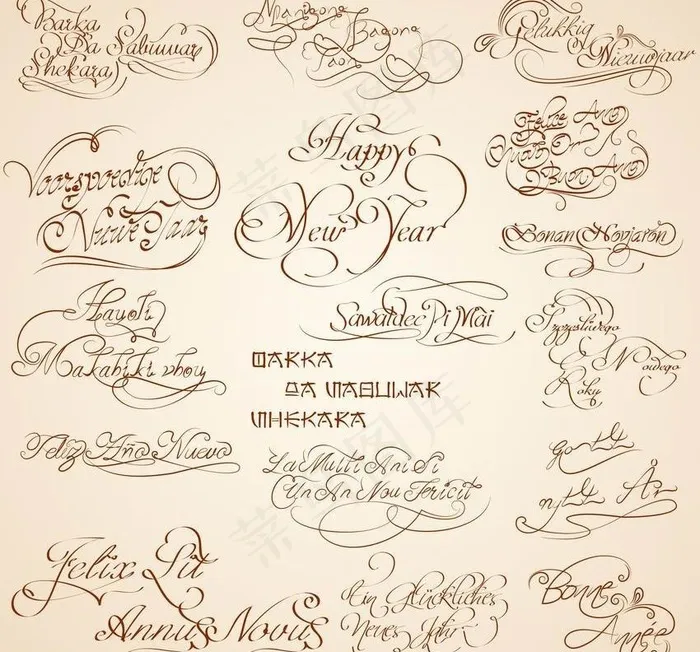 Barka
Da Sabuwar
Shekara
Manigong
Bagong
Taon
Gelukkig
Nieuwjaar
Voorspoedige
Nuwe Jaar
Happy
New Year
Felice Anno
Nuovo Or
Buon Anno
Bonan Novjaron
Hauoli
Makahiki hou
Sawatdee Pi Mai
Szczesliwego
Nowego
Roku
BARKA
DA SABUWAR
SHEKARA
Feliz Año Nuevo
La Multi Ani Si
Un An Nou Fericit
gott
nytt År
Felix Sit
Annus Novus
Ein Glückliches
Neues Jahr
Bonne
Année
菜鸟图库
菜鸟图库